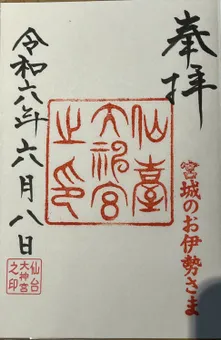 奉拝
宮城のお伊勢さま
仙臺
大神宮
之印
令和六年六月八日
仙台
大神宮
之印